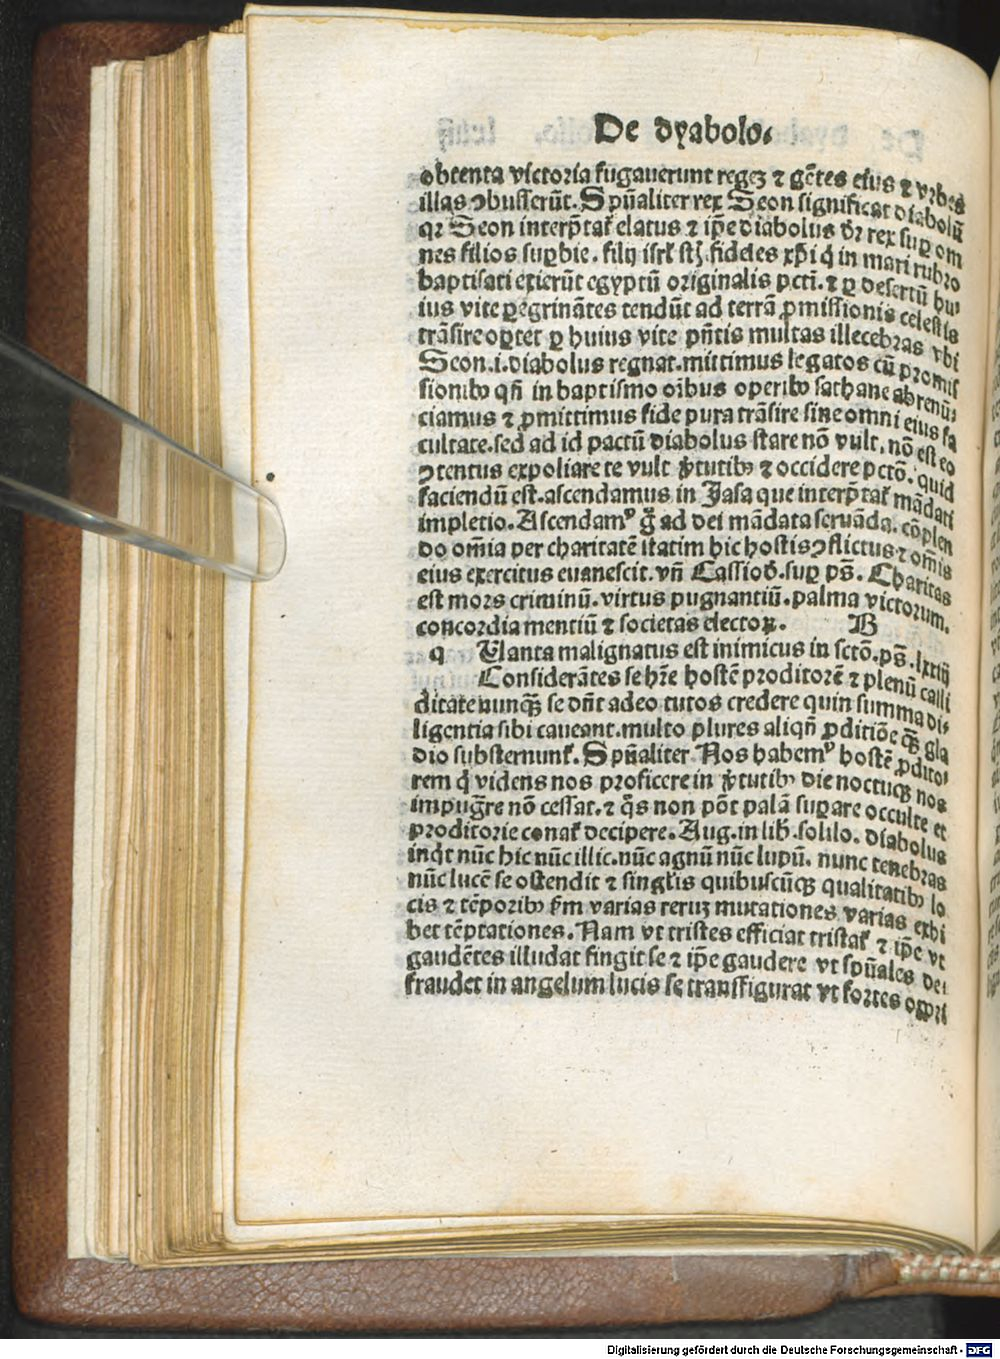 De dyabolo.
obtenta victoria fugauerunt regeʒ ⁊ gẽtes eius ⁊ vrbes
illas ↄbusserũt. Spũaliter rex Seon significat diabolũ
qꝛ Seon interp̃tat᷑ elatus ⁊ ip̃e diabolus d̃r rex suꝑ om
nes filios suꝑbie. filij isrl̃ ſtʒ fideles xp̃i q̇ in mari rubro
baptisati exierũt egyptũ originalis pcti. ⁊ ꝑ desertũ hu⸗
ius vite ꝑegrinãtes tendũt ad terrã ꝓmissionis celestis
trãsire oꝑtet ꝑ huius vite pñtis multas illecebras vbi
Seon .i. diabolus regnat. mittimus legatos cũ promis
sionibꝰ qñ in baptismo oĩbus operibꝰ sathane abrenũ⸗
ciamus ⁊ ꝓmittimus fide pura trãsire sine omni eius fa
cultate. sed ad id pactũ diabolus stare nõ vult. nõ est eo
ↄtentus expoliare te vult v̓tutibꝰ ⁊ occidere pctõ. quid
faciendũ est. ascendamus in Jasa que interp̃tat᷑ mãdati
impletio. Ascendamꝰ g̊ ad dei mãdata seruãda. cõplen
do om̃ia per charitatẽ statim hic hostis ↄflictus ⁊ om̃is
eius exercitus euanescit. vñ Cassiod̃. suꝑ ps̃. Charitas
est mors criminũ. virtus pugnantiũ. palma victorum.
concordia mentiũ ⁊ societas electoꝝ. B
q Tanta malignatus est inimicus in sctõ. ps̃. lxxiij
Considerãtes se hr̃e hostẽ proditorẽ ⁊ plenũ calli
ditate nunqꝫ se dñt adeo tutos credere quin summa di⸗
ligentia sibi caueant. multo plures aliqñ ꝓditiõe qꝫ gla
dio substernunt᷑. Spũaliter Nos habemꝰ hostẽ ꝓdito⸗
rem q̇ videns nos proficere in v̓tutibꝰ die noctuqꝫ nos
impug̃re nõ cessat. ⁊ q̊s non põt palã suꝑare occulte et
proditorie conat᷑ decipere. Aug. in lib̃. solilo. diabolus
inq̇t nũc hic nũc illic. nũc agnũ nũc lupũ. nunc tenebras
nũc lucẽ se ostendit ⁊ singl̃is quibuscũqꝫ qualitatibꝰ lo
cis ⁊ tẽporibꝰ ẜm varias reruʒ mutationes varias exhi
bet tẽptationes. Nam vt tristes efficiat tristat᷑ ⁊ ip̃e vt
gaudẽtes illudat fingit se ⁊ ip̃e gaudere vt spũales de⸗
fraudet in angelum lucis se transfigurat vt fortes oꝑpri
Digitalisierung gefördert durch die Deutsche Forschungsgemeinschaft - DFG